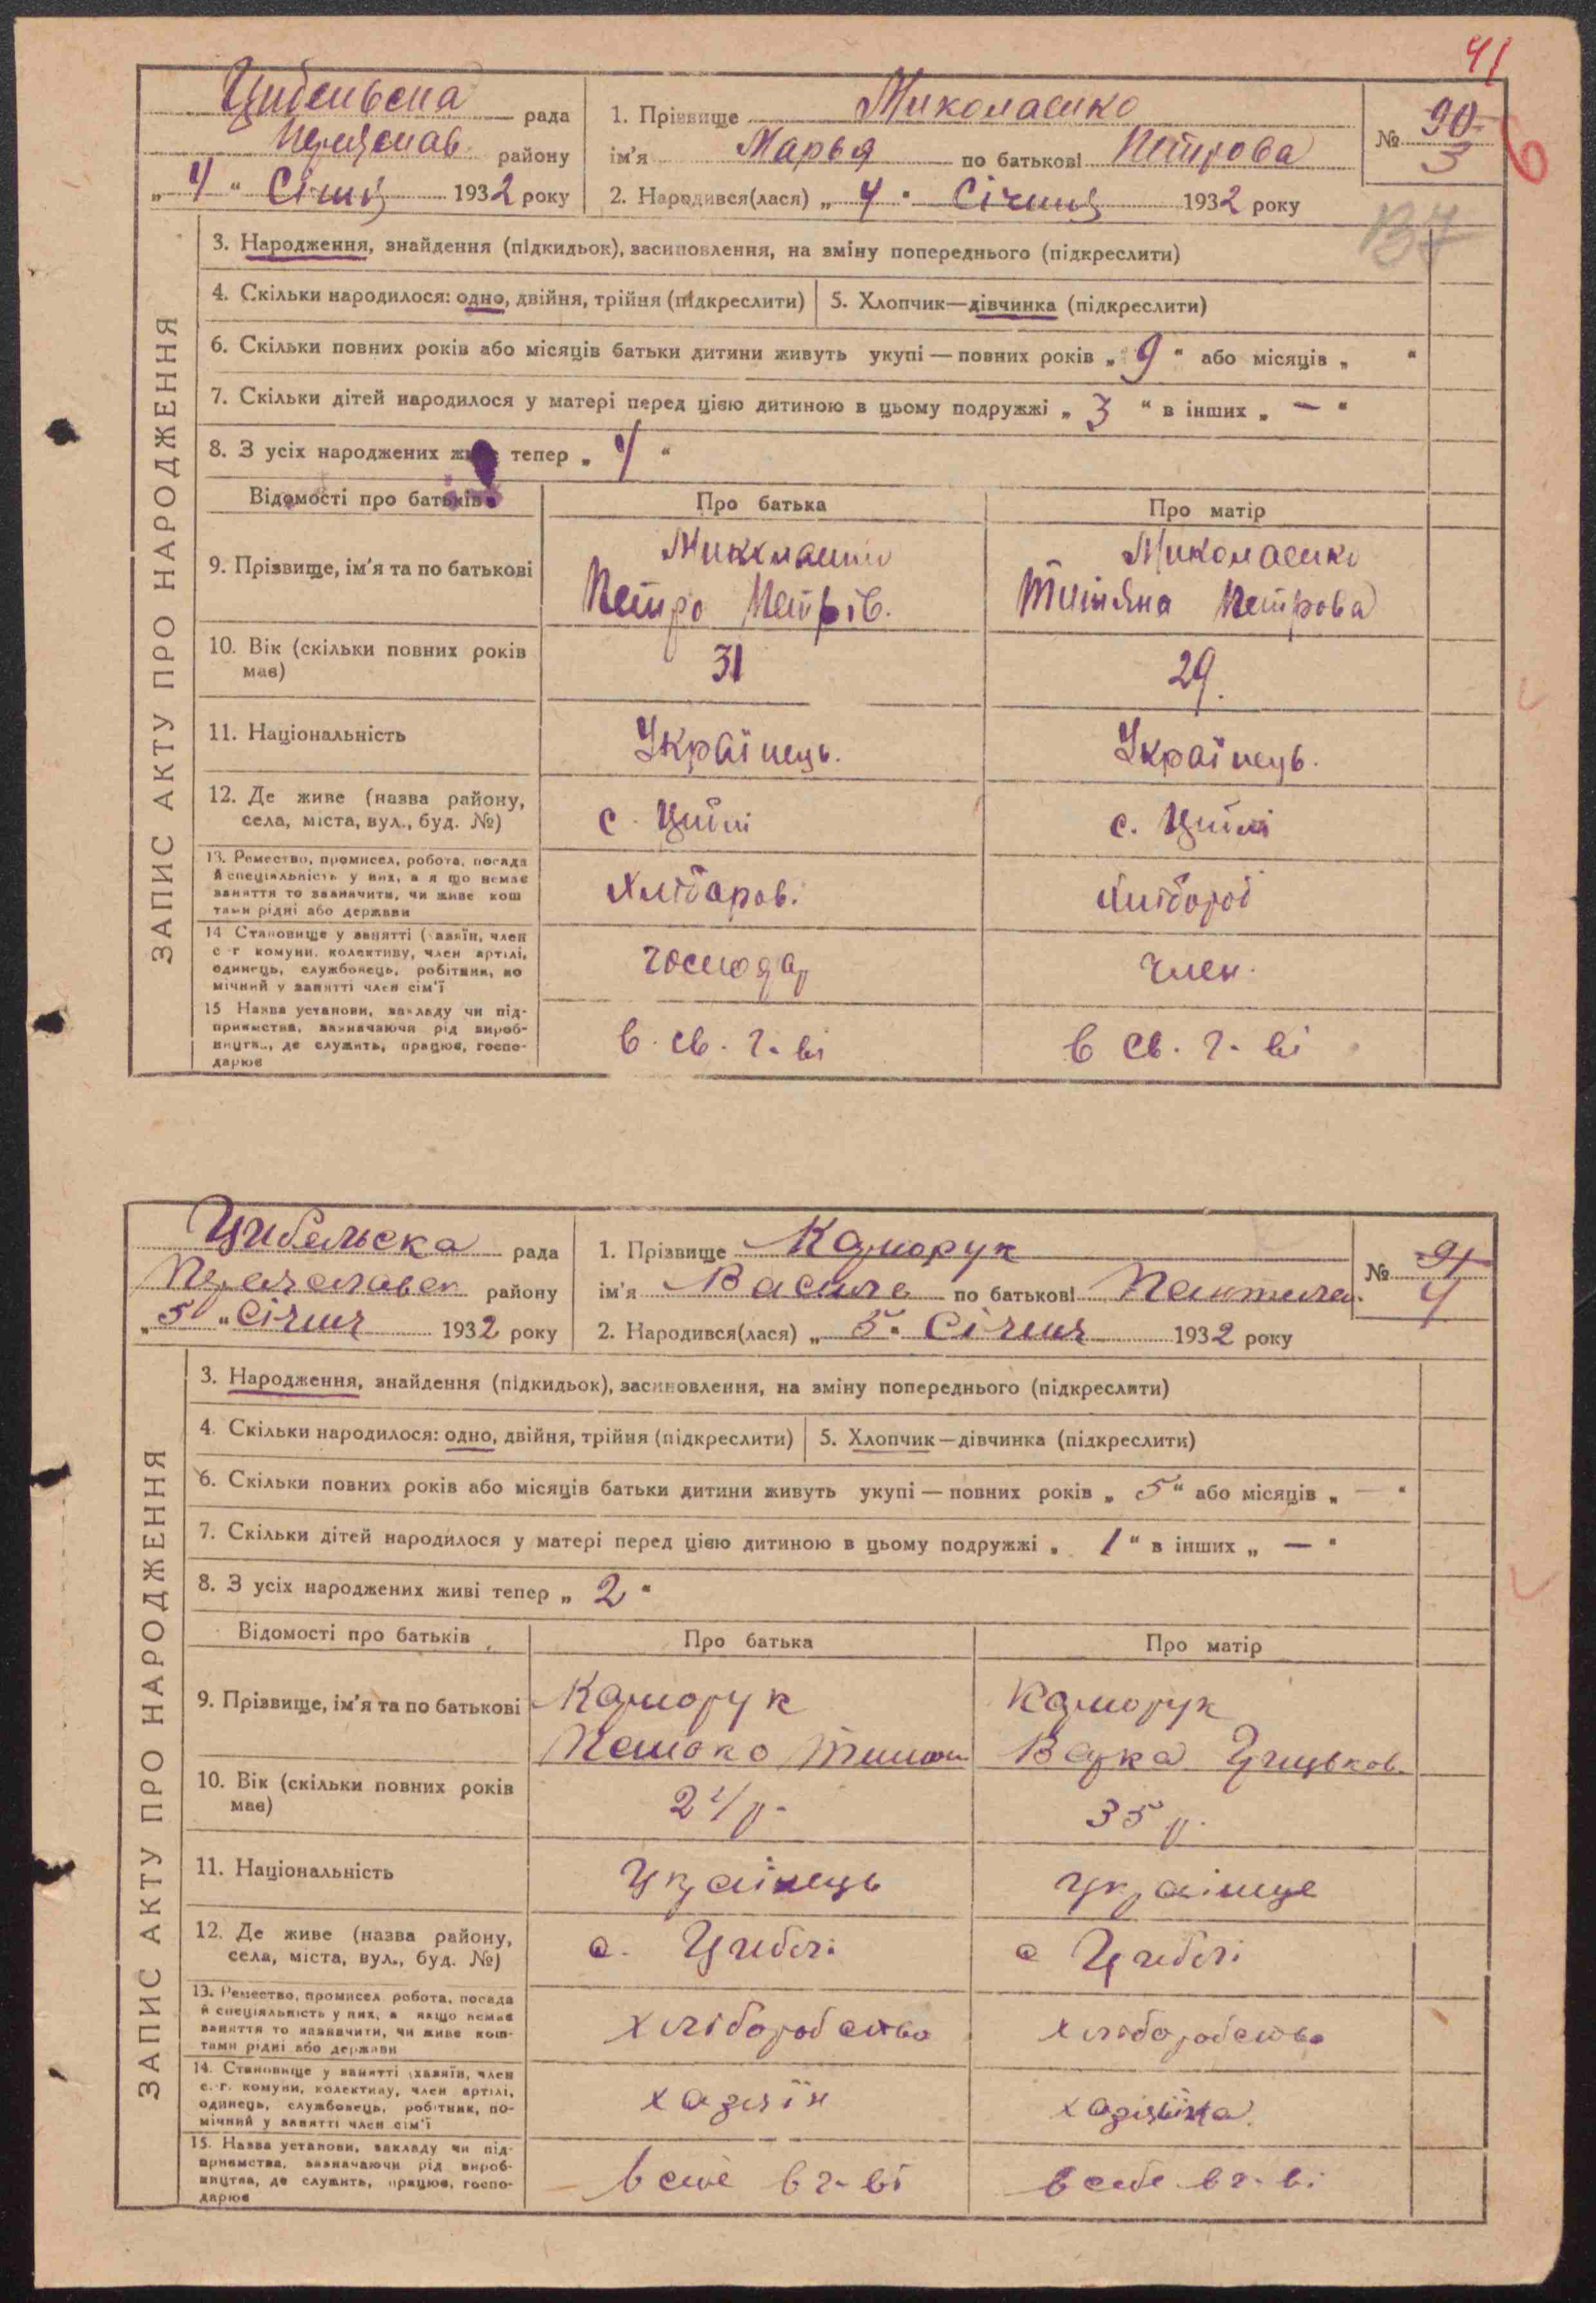 41
Цибельська рада
Переяслав району
„ 4 “ Січня 1932 року
1. Прізвище Миколаєнко
ім'я Марья по батькові Петрова
2. Народився(лася) „ 4 “ Січня 1932 року
№ 90
3
6
137
ЗАПИС АКТУ ПРО НАРОДЖЕННЯ
3. Народження, знайдення (підкидьок), засиновлення, на зміну попереднього (підкреслити)
4. Скільки народилося: одно, двійня, трійня (підкреслити) 5. Хлопчик—дівчинка (підкреслити)
6. Скільки повних років або місяців батьки дитини живуть укупі — повних років „ 9 “ або місяців „ “
7. Скільки дітей народилося у матері перед цією дитиною в цьому подружжі „ 3 “ в інших „ — “
8. З усіх народжених живі тепер „ 4 “
Відомості про батьків Про батька Про матір
9. Прізвище, ім'я та по батькові
Миколаенко Миколаенко
Петро Петрів. Титяна Петрова
10. Вік (скільки повних років 31 29.
має)
11. Національність Українець. Українець.
12. Де живе (назва району,
села, міста, вул., буд. №) с. Циблі с. Циблі
13. Ремество, промисел, робота, посада
й спеціяльність у них, а я що немає
заняття то зазначити, чи живе кош
тами рідні або держави
Хлібароб. Хлібороб
14 Становище у занятті (хазяїн, член
с-г комуни, колективу, член артілі,
одинець, службовець, робітник, по
мічний у занятті член сім'ї
господар член.
15 Назва установи, закладу чи під-
приємства, зазначаючи рід вироб-
ництва, де служить, працює, госпо-
дарює
в. св. г-ві в св. г-ві
Цибельска рада
району
„ 5 “ Січня 1932 року
1. Прізвище
ім'я Василь по батькові
2. Народився(лася) „ 5 “ Січня 1932 року
№ 91
4
ЗАПИС АКТУ ПРО НАРОДЖЕННЯ
3. Народження, знайдення (підкидьок), засиновлення, на зміну попереднього (підкреслити)
4. Скільки народилося: одно, двійня, трійня (підкреслити) 5. Хлопчик—дівчинка (підкреслити)
6. Скільки повних років або місяців батьки дитини живуть укупі — повних років „ 5 “ або місяців „ — “
7. Скільки дітей народилося у матері перед цією дитиною в цьому подружжі „ 1 “ в інших „ — “
8. З усіх народжених живі тепер „ 2 “
Відомості про батьків Про батька Про матір
9. Прізвище, ім'я та по батькові
Варка Грицьков.
10. Вік (скільки повних років 24 р. 35 р.
має)
11. Національність Українець українце
12. Де живе (назва району,
села, міста, вул., буд. №) с. Циблі с Циблі
13. Ремество, промисел робота, посада
й спеціяльність у них, а якщо немає
заняття то зазначити, чи живе кош-
тами рідні або держави
хліборобство хліборобство
14. Становище у занятті (хазяїн, член
с.-г. комуни, колективу, член артілі,
одинець, службовець, робітник, по-
мічний у занятті член сім'ї
хазяїн хазяїнка
15. Назва установи, закладу чи під-
приємства, зазначаючи рід вироб-
ництва, де служить, працює, госпо-
дарює
в своє в г-ві в себе в г-ві